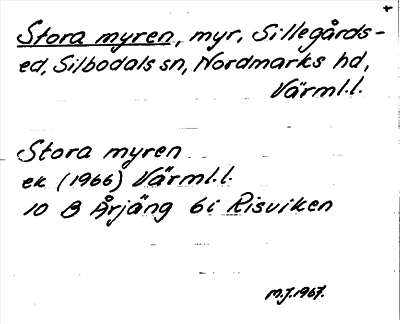 Stora myren, myr, Sillegårds-
ed, Silbodals sn, Nordmarks hd,
Värml.l.
Stora myren
ek (1966) Värml.l.
10 B Årjäng 6i Risviken
M.J.1967.